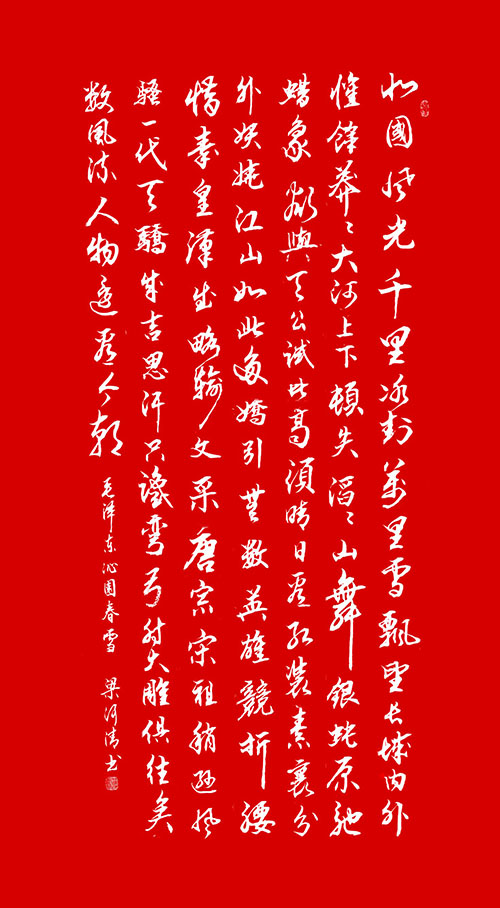 北國风光千里冰封萬里雪飄望长城内外
惟餘莽〻大河上下頓失滔〻山舞銀蛇原馳
蜡象欲與天公试比高須晴日看红装素裹分
外妖娆江山如此多嬌引無数英雄競折腰
惜秦皇漢武略输文采唐宗宋祖稍遜风
騷一代天驕成吉思汗只識彎弓射大雕俱往矣
数风流人物還看今朝
毛泽东沁园春雪 梁河清书